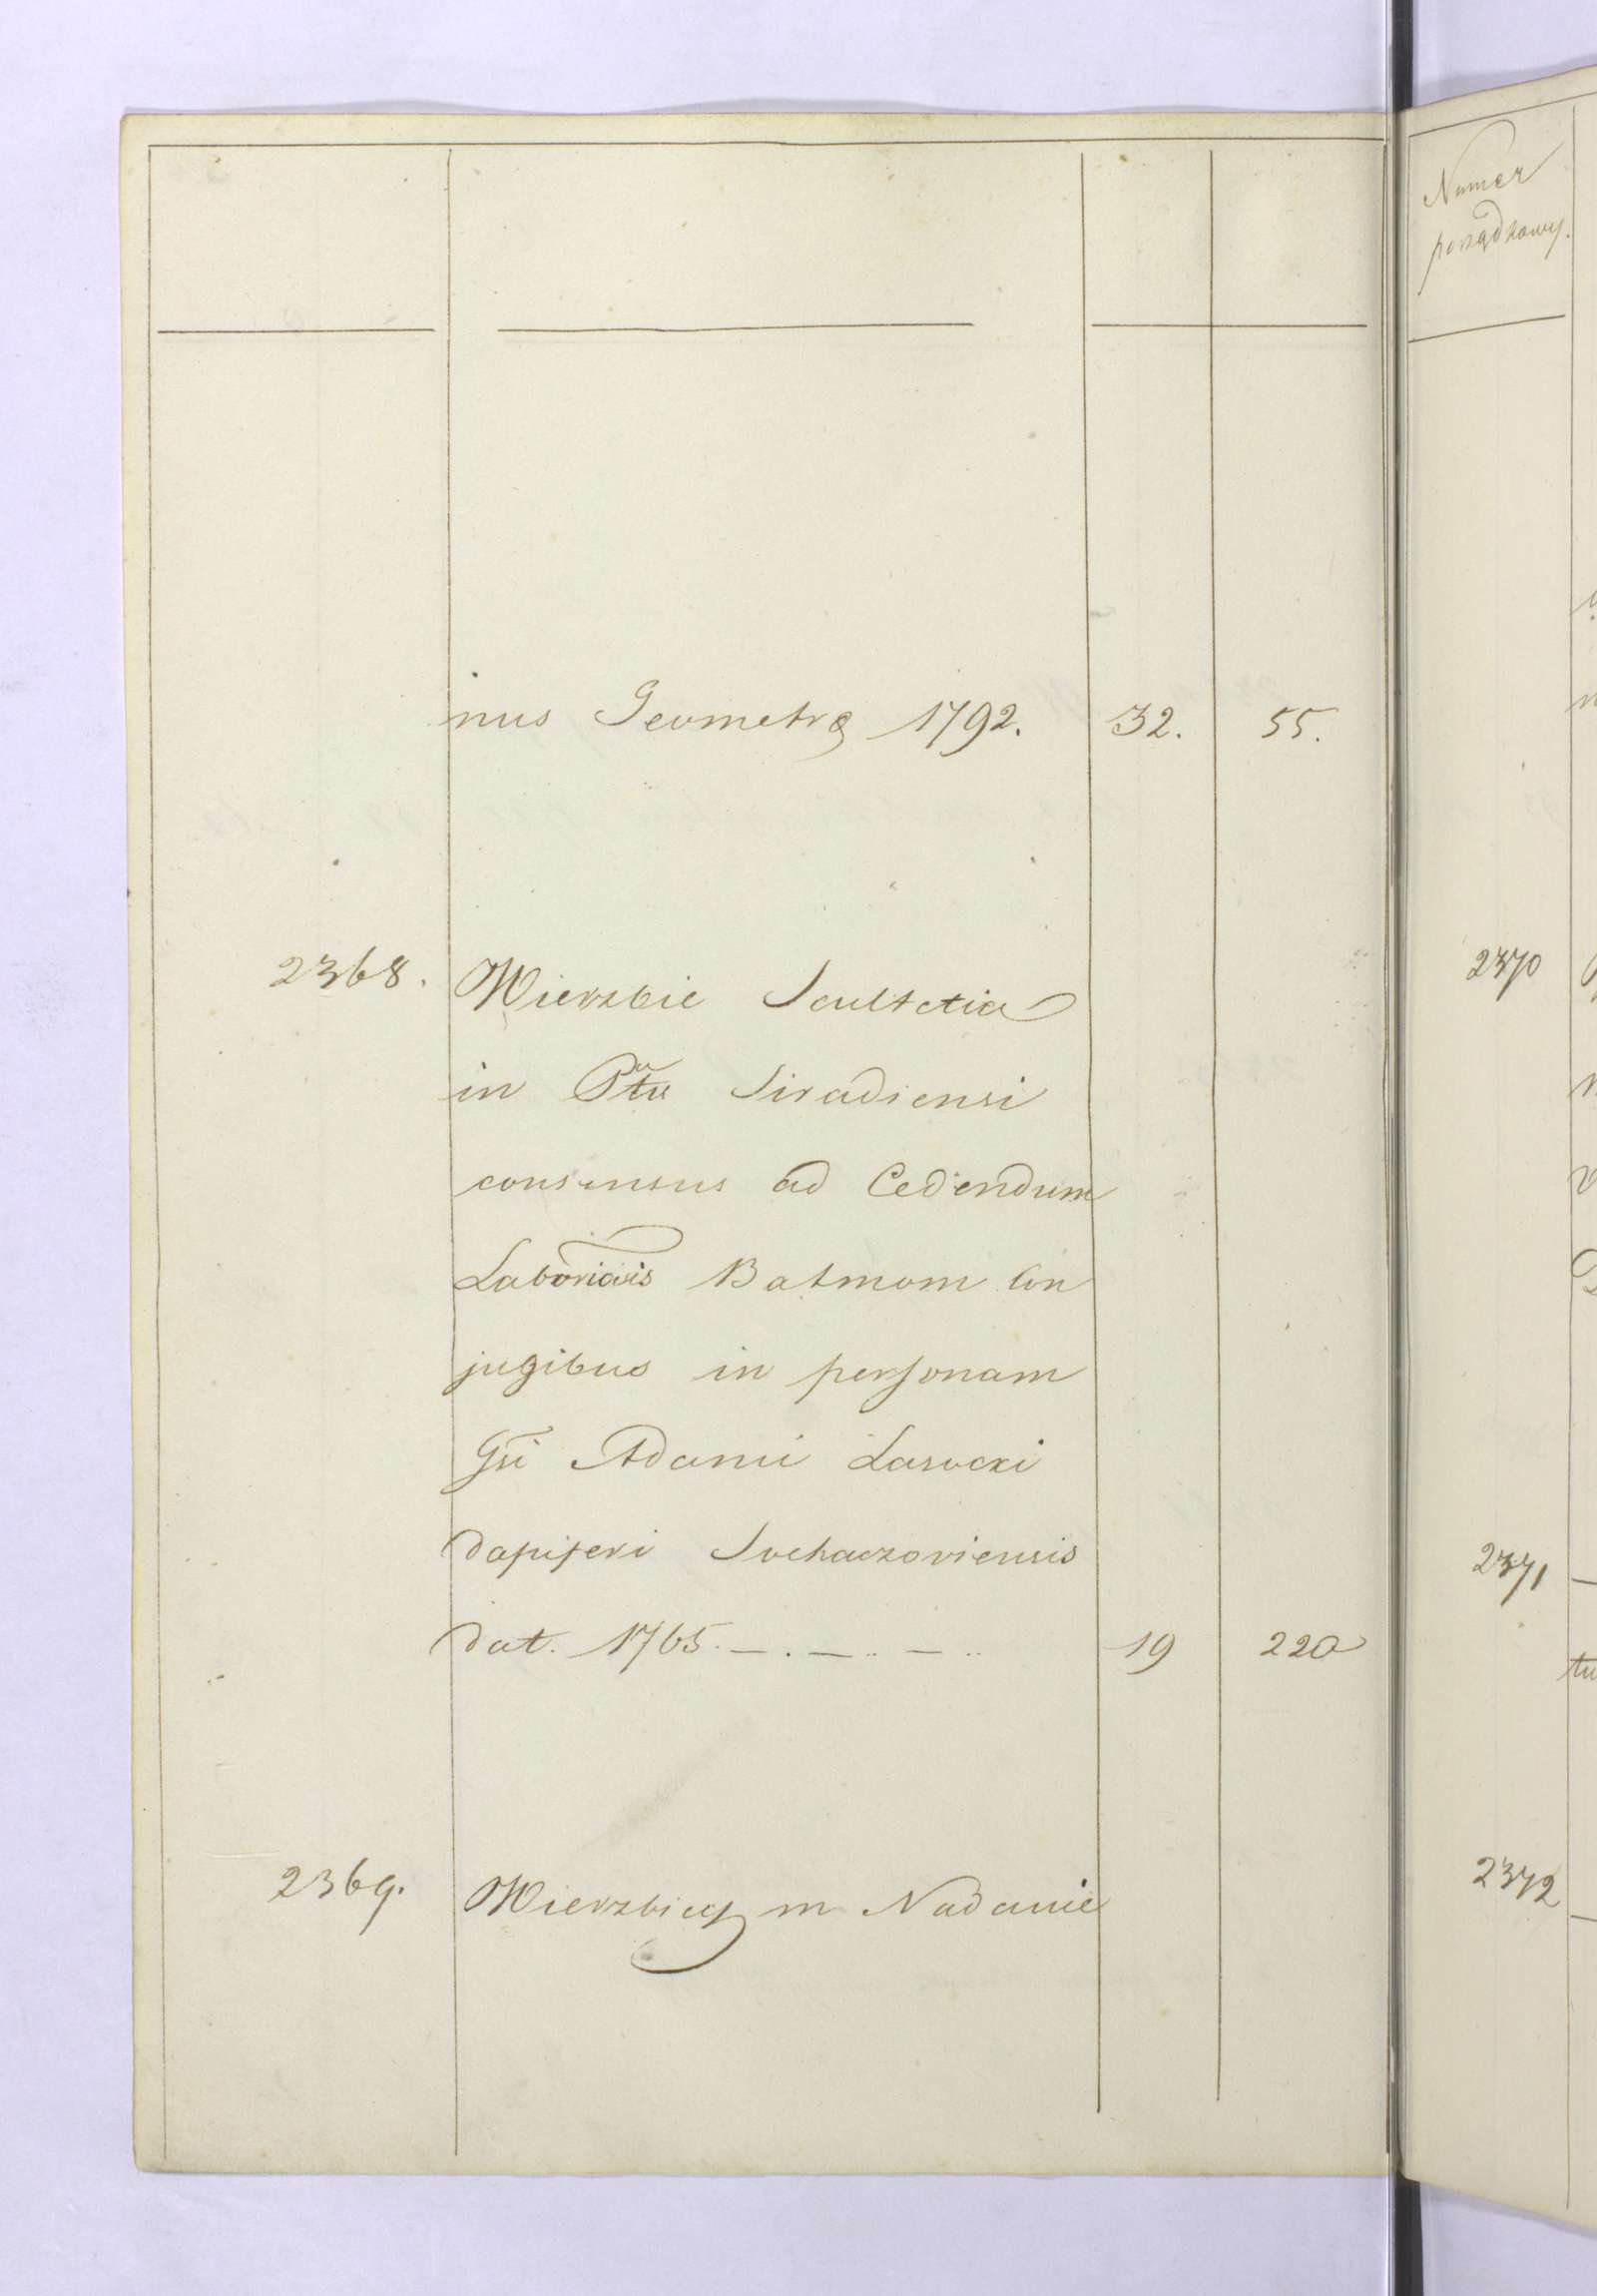 nus Geometrę 1792. 32. 55.
2368. Wierzbie Scultetia
in Pttu Siradiensi
consensus ad Cedendum
Laboriosis Batmom Con
jugibus in personam
Gsi Adami Lasocki
dapiferi Sochaczoviensis
dat. 1765. — . — .. — .. 19 220
2369. Wierzbięcym Nadanie
Numer
porządkowy.
2370
2371
tu
2372